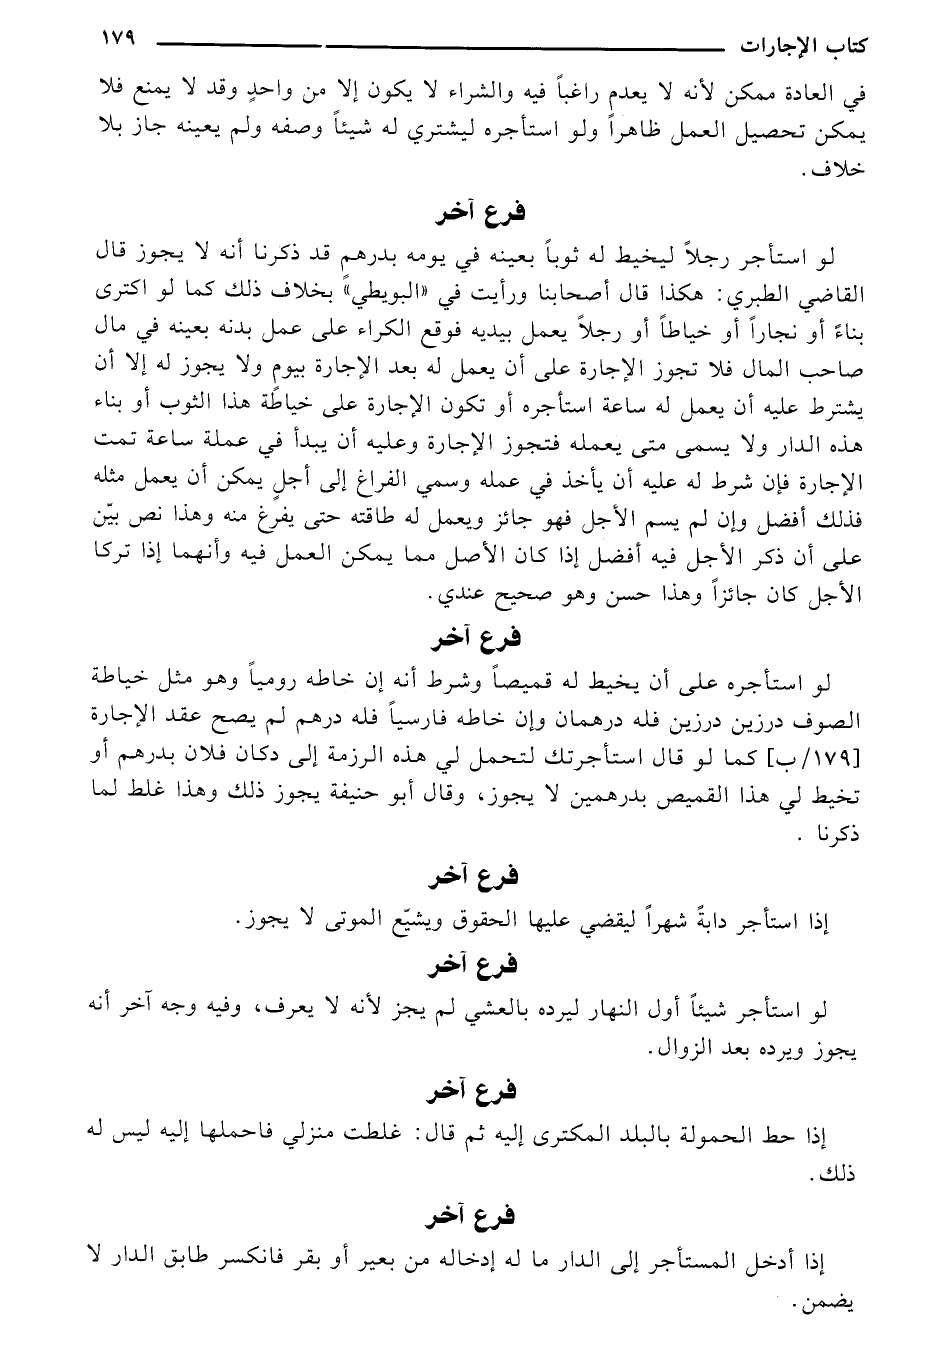 كتاب الإجارات ١٧٩
في العادة ممكن لأنه لا يعدم راغباً فيه والشراء لا يكون إلا من واحدٍ وقد لا يمنع فلا
يمكن تحصيل العمل ظاهراً ولو استأجره ليشتري له شيئاً وصفه ولم يعينه جاز بلا
خلاف.
فرع آخر
لو استأجر رجلاً ليخيط له ثوباً بعينه في يومه بدرهمٍ قد ذكرنا أنه لا يجوز قال
القاضي الطبري: هكذا قال أصحابنا ورأيت في «البويطي» بخلاف ذلك كما لو اكترى
بناءً أو نجاراً أو خياطاً أو رجلاً يعمل بيديه فوقع الكراء على عمل بدنه بعينه في مال
صاحب المال فلا تجوز الإجارة على أن يعمل له بعد الإجارة بيومٍ ولا يجوز له إلا أن
يشترط عليه أن يعمل له ساعة استأجره أو تكون الإجارة على خياطة هذا الثوب أو بناء
هذه الدار ولا يسمى متى يعمله فتجوز الإجارة وعليه أن يبدأ في عملة ساعة تمت
الإجارة فإن شرط له عليه أن يأخذ في عمله وسمي الفراغ إلى أجلٍ يمكن أن يعمل مثله
فذلك أفضل وإن لم يسم الأجل فهو جائز ويعمل له طاقته حتى يفرغ منه وهذا نص بيّن
على أن ذكر الأجل فيه أفضل إذا كان الأصل مما يمكن العمل فيه وأنهما إذا تركا
الأجل كان جائزاً وهذا حسن وهو صحيح عندي.
فرع آخر
لو استأجره على أن يخيط له قميصاً وشرط أنه إن خاطه رومياً وهو مثل خياطة
الصوف درزين درزين فله درهمان وإن خاطه فارسياً فله درهم لم يصح عقد الإجارة
[١٧٩/ب] كما لو قال استأجرتك لتحمل لي هذه الرزمة إلى دكان فلان بدرهم أو
تخيط لي هذا القميص بدرهمين لا يجوز، وقال أبو حنيفة يجوز ذلك وهذا غلط لما
ذكرنا .
فرع آخر
إذا استأجر دابةً شهراً ليقضي عليها الحقوق ويشيّع الموتى لا يجوز.
فرع آخر
لو استأجر شيئاً أول النهار ليرده بالعشي لم يجز لأنه لا يعرف، وفيه وجه آخر أنه
يجوز ويرده بعد الزوال.
فرع آخر
إذا حط الحمولة بالبلد المكترى إليه ثم قال: غلطت منزلي فاحملها إليه ليس له
ذلك.
فرع آخر
إذا أدخل المستأجر إلى الدار ما له إدخاله من بعير أو بقر فانكسر طابق الدار لا
يضمن.